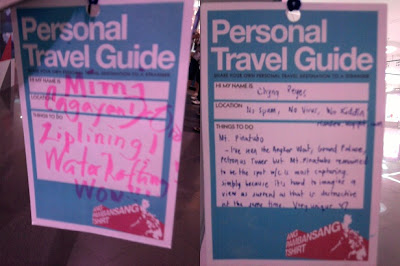 Personal
Travel Guide
SHARE YOUR OWN PERSONAL TRAVEL DESTINATION TO A STRANGER
HI MY NAME IS
Mimi
LOCATION
THINGS TO DO
Ziplining!
Water Rafting
Wow
ANG
PAMBANSANG
TSHIRT
Personal
Travel Guide
SHARE YOUR OWN PERSONAL TRAVEL DESTINATION TO A STRANGER
HI MY NAME IS
Chyng Reyes
LOCATION
No Spam, No Virus, No Kiddin
THINGS TO DO
Mt. Pinatubo
- I've seen the Angkor Wat, Grand Palace,
Petronas Tower but Mt. Pinatubo remained
to be the spot w/c is most captivating.
Simply because it's hard to imagine a
view as surreal as that is destructive
at the same time. Very unique
ANG
PAMBANSANG
TSHIRT